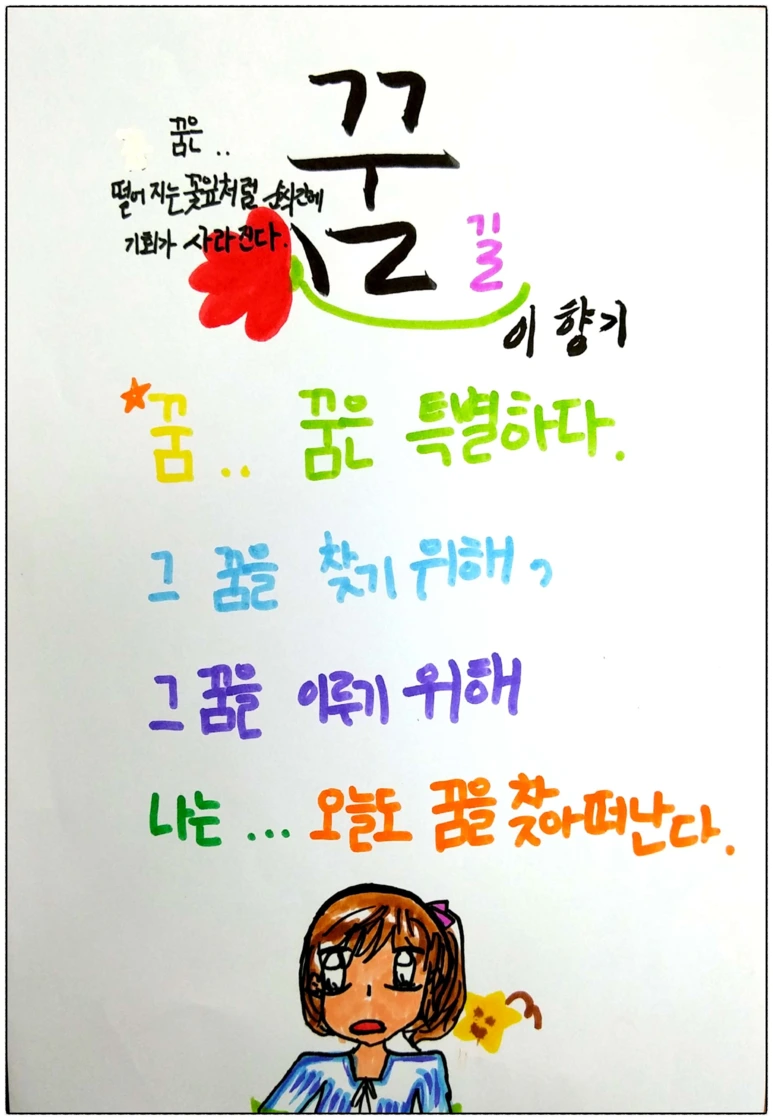 꿈
길
꿈은..
떨어지는 꽃잎처럼 순식간에
기회가 사라진다.
이향기
꿈.. 꿈은 특별하다.
그 꿈을 찾기 위해,
그 꿈을 이루기 위해
나는... 오늘도 꿈을 찾아 떠난다.